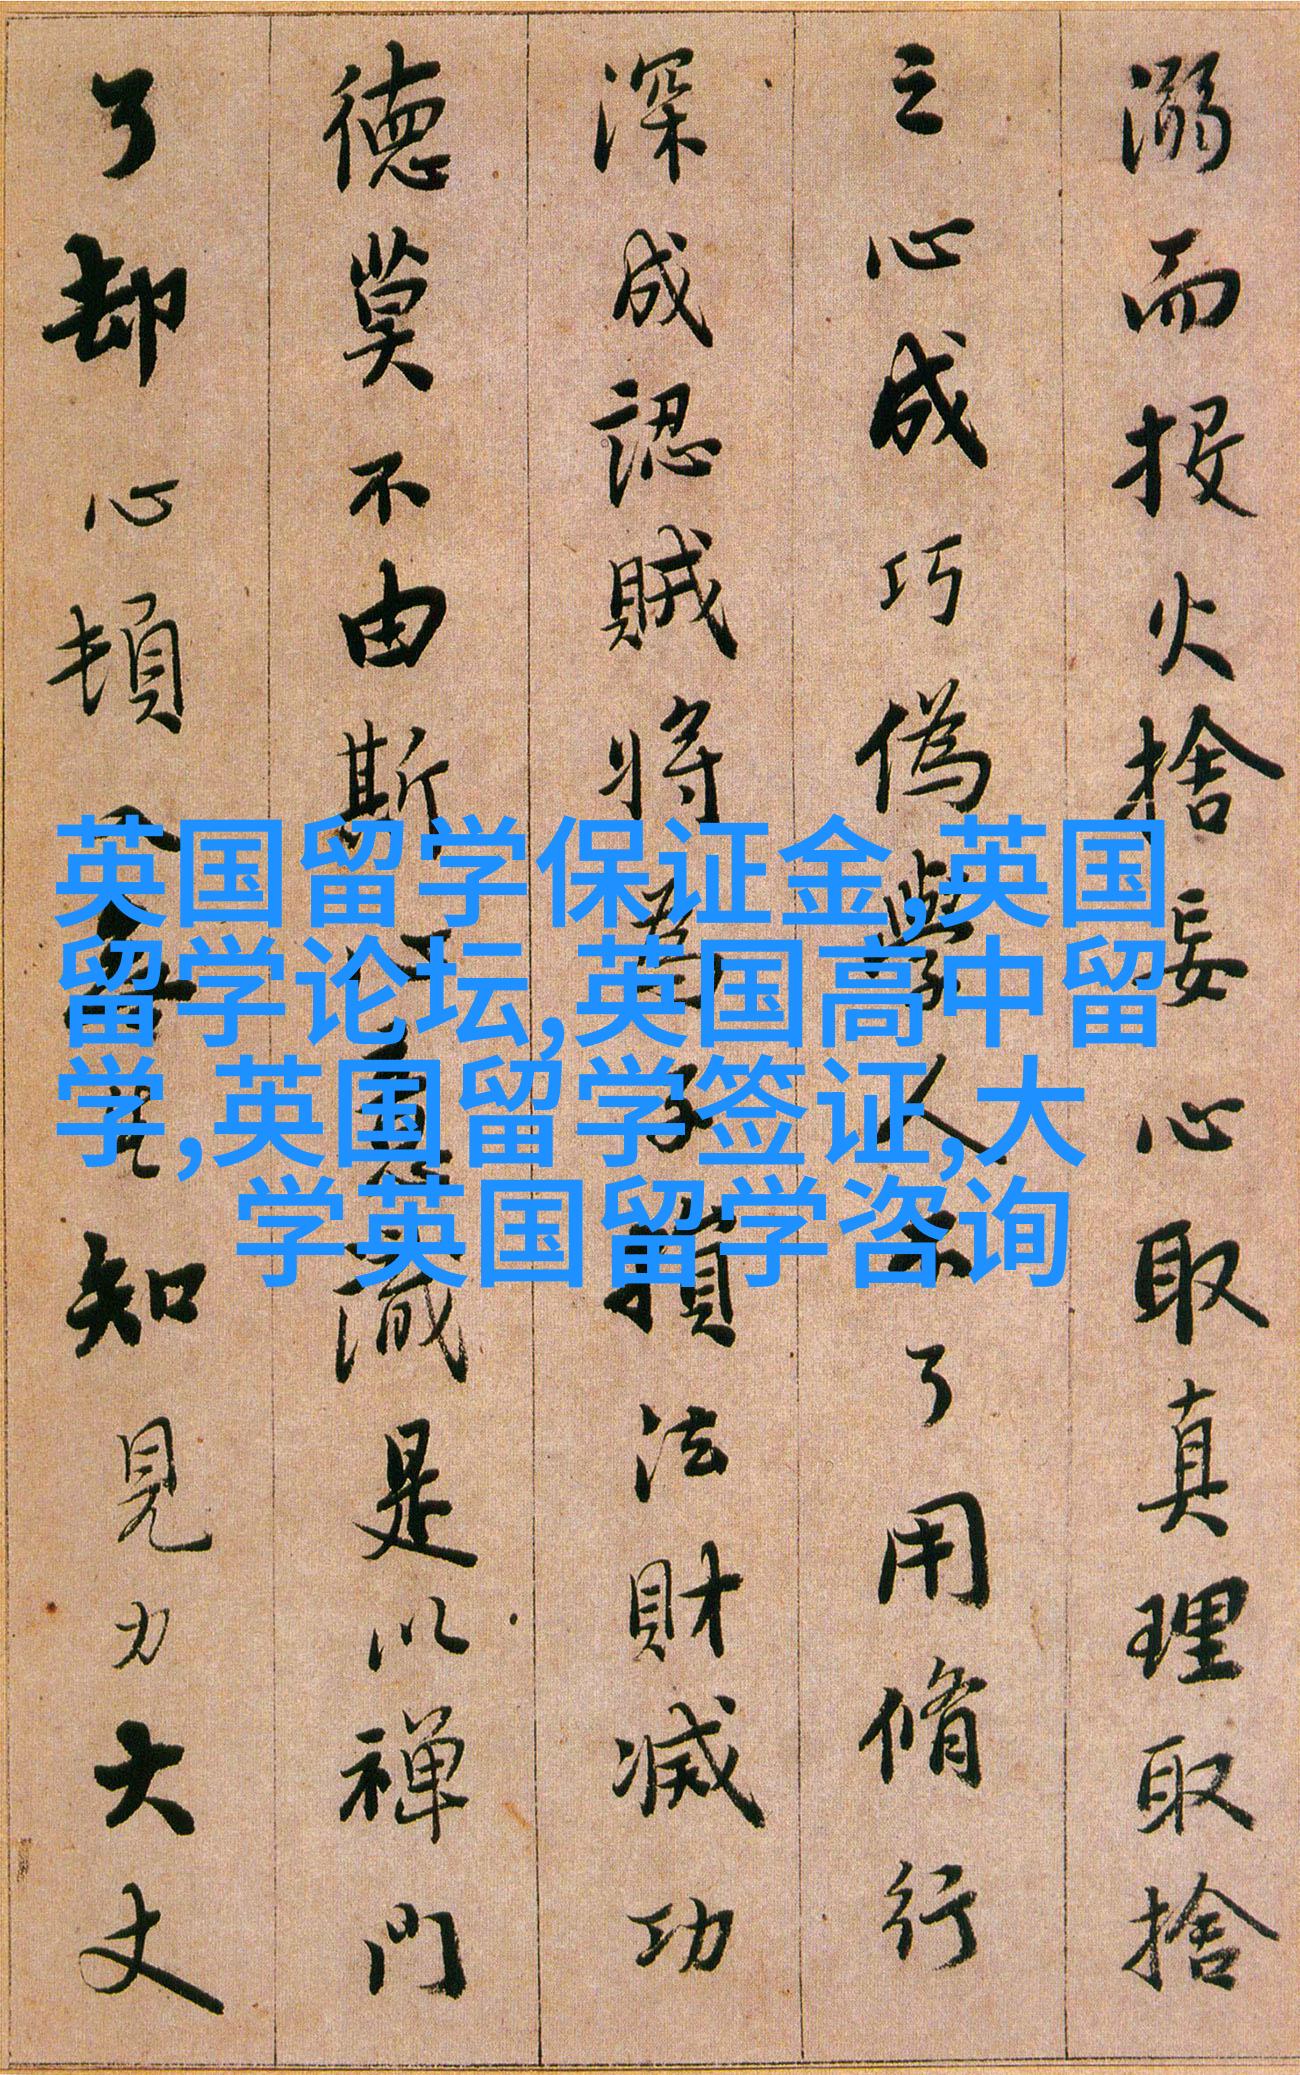 溺而投火捨妄心取真理取捨
之心成巧偽學人不了用脩行
深成認賊将為子損法財滅功
德莫不由斯心意識是以禅門
了却心頓入無生知見力大丈
英国留学保证金,英国
留学论坛,英国高中留
学,英国留学签证,大
学英国留学咨询